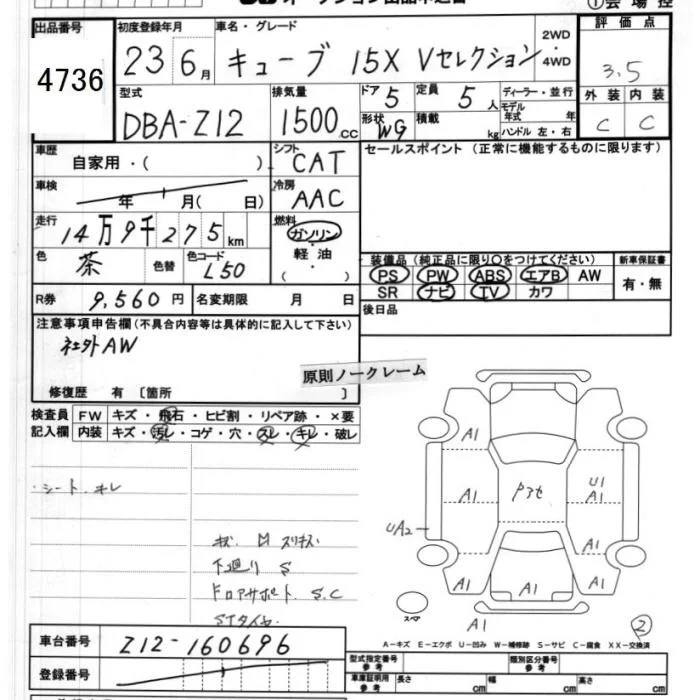 ①会場控
出品番号
4736
初度登録年月
23 6月
車名・グレード
キューブ 15X Vセレクション
2WD
・
4WD
評価点
3.5
型式
DBA-Z12
排気量
1500 cc
ドア
5
定員
5人
形状
WG
積載
kg
ディーラー・並行
モデル年式 年
ハンドル 左・右
外装
内装
C
C
車歴
自家用・( )
シフト
CAT
セールスポイント (正常に機能するものに限ります)
車検
年 月( 日)
冷房
AAC
走行
14万9千275km
燃料
ガソリン
・
軽油
( )
色
茶
色替
色コード
L50
装備品 (純正品に限り○をつけてください)
PS PW ABS エアB AW
SR ナビ TV カワ
新車保証書
有・無
R券
9,560円
名変期限 月 日
後日品
注意事項申告欄 (不具合内容等は具体的に記入して下さい)
社外AW
原則ノークレーム
修復歴 有 〔箇所 〕
検査員記入欄
FW キズ・飛石・ヒビ割・リペア跡・×要
内装 キズ・汚レ・コゲ・穴・スレ・キレ・破レ
・シート キレ
キズ
下廻り S
ドロアサポート S.C
STタイヤ
A1
A1
Pアセ
U1
A1
UA2
A1
A1
A1
A1
スペア
A1
2
A-キズ E-エクボ U-凹み W-補修跡 S-サビ C-腐食 XX-交換済
車台番号
Z12-160696
登録番号
型式指定番号
参考
類別区分番号
参考
車庫証明用
参考
長さ cm
幅 cm
高さ cm